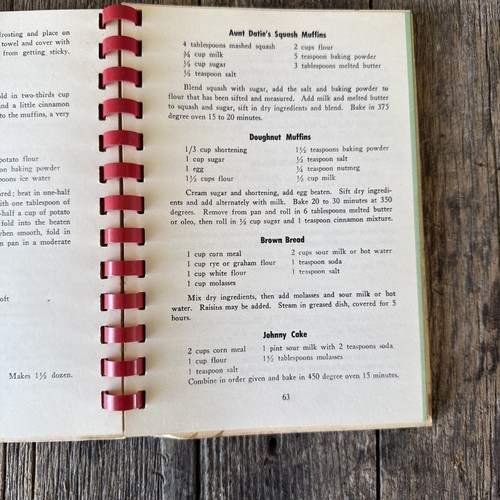 frosting and place on
towel and cover with
from getting sticky.
old in two-thirds cup
nd a little cinnamon
to the muffins, a very
potato flour
on baking powder
spoons ice water
ored; beat in one-half
with one tablespoon of
half a cup of potato
fold into the beaten
when smooth, fold in
n pan in a moderate
oft
Makes 1½ dozen.
Aunt Datie's Squash Muffins
4 tablespoons mashed squash 2 cups flour
¾ cup milk 5 teaspoon baking powder
cup sugar 3 tablespoons melted butter
½ teaspoon salt
Blend squash with sugar, add the salt and baking powder to
flour that has been sifted and measured. Add milk and melted butter
to squash and sugar, sift in dry ingredients and blend. Bake in 375
degree oven 15 to 20 minutes.
Doughnut Muffins
1/3 cup shortening 1½ teaspoons baking powder
1 cup sugar ½ teaspoon salt
1 egg ¼ teaspoon nutmeg
1½ cups flour ½ cup milk
Cream sugar and shortening, add egg beaten. Sift dry ingredi-
ents and add alternately with milk. Bake 20 to 30 minutes at 350
degrees. Remove from pan and roll in 6 tablespoons melted butter
or oleo, then roll in ½ cup sugar and 1 teaspoon cinnamon mixture.
Brown Bread
1 cup corn meal 2 cups sour milk or hot water
1 cup rye or graham flour 1 teaspoon soda
1 cup white flour 1 teaspoon salt
1 cup molasses
Mix dry ingredients, then add molasses and sour milk or hot
water. Raisins may be added. Steam in greased dish, covered for 5
hours.
Johnny Cake
2 cups corn meal 1 pint sour milk with 2 teaspoons soda
1 cup flour tablespoons molasses
1 teaspoon salt
Combine in order given and bake in 450 degree oven 15 minutes.
63